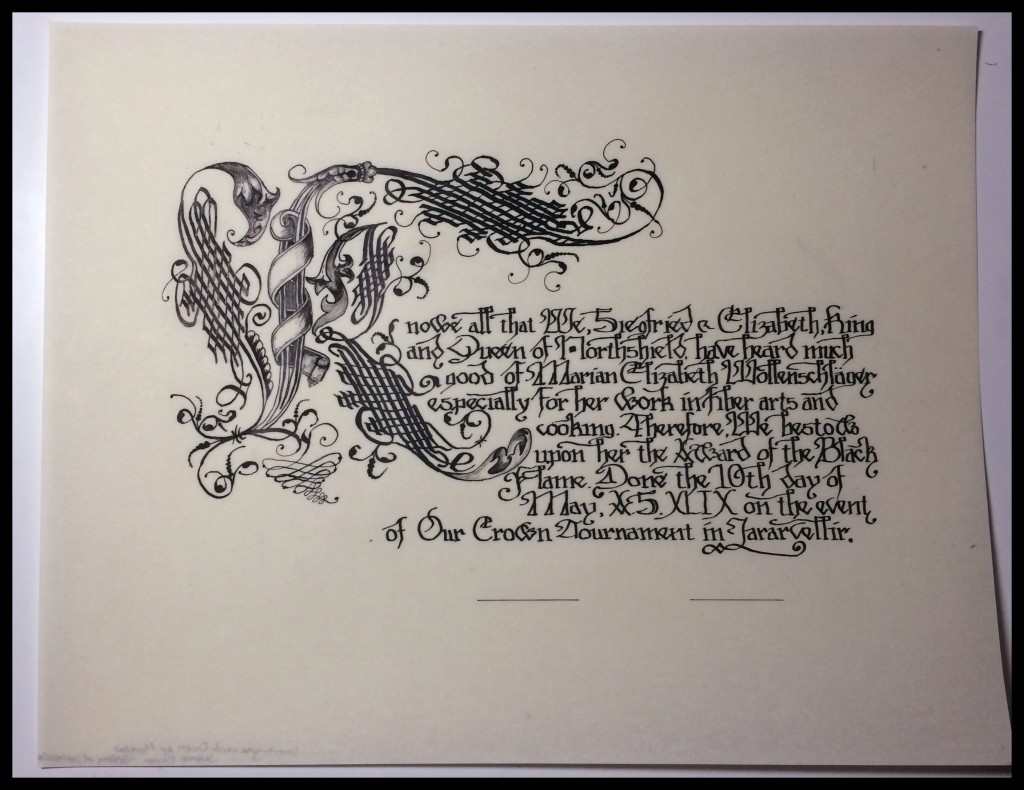 Knowe all that We, Siegfried & Elizabeth, King
and Queen of Northshield, have heard much
good of Marian Elizabeth Wollenschläger
especially for her work in fiber arts and
cooking. Therefore, We bestow
upon her the Award of the Black
Flame. Done the 10th day of
May, A.S. XLIX on the event
of Our Crown Tournament in Jararvellir.